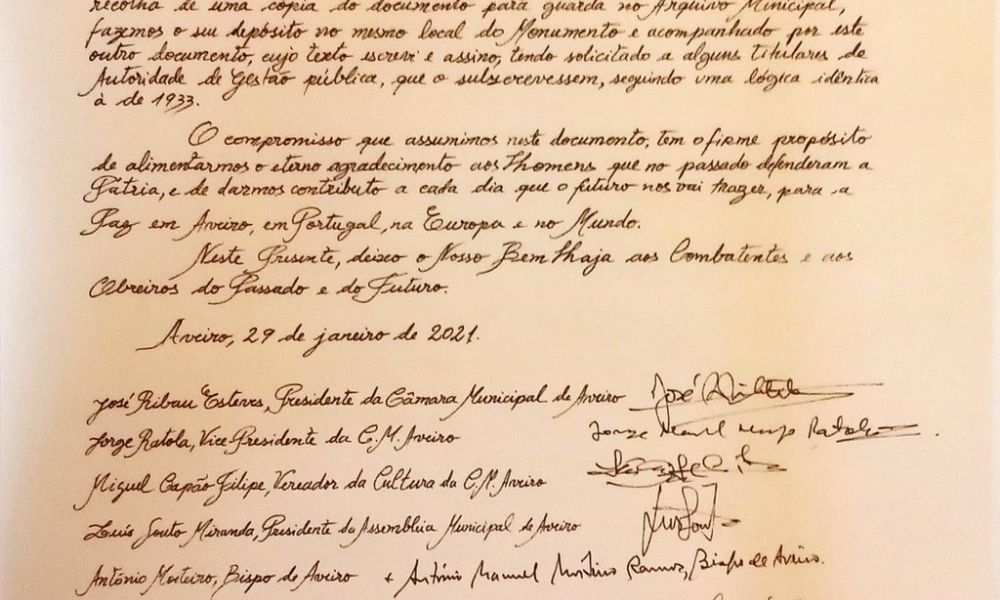 recolha de uma cópia do documento para guarda no Arquivo Municipal,
fazemos o seu depósito no mesmo local do Monumento e acompanhado por este
outro documento, cujo texto escrevi e assino, tendo solicitado a alguns titulares de
Autoridade de Gestão pública, que o subscrevessem, seguindo uma lógica idêntica
à de 1933.
O compromisso que assumimos neste documento, tem o firme propósito
de alimentarmos o eterno agradecimento aos Homens que no passado defenderam a
Pátria, e de darmos contributo a cada dia que o futuro nos vai trazer, para a
Paz em Aveiro, em Portugal, na Europa e no Mundo.
Neste Presente, deixo o Nosso Bem Haja aos Combatentes e aos
Obreiros do Passado e do Futuro.
Aveiro, 29 de janeiro de 2021.
José Ribau Esteves, Presidente da Câmara Municipal de Aveiro José
Jorge Ratola, Vice-Presidente da C.M. Aveiro Jorge Manuel Ratola
Miguel Capão Filipe, Vereador da Cultura da C.M. Aveiro
Luís Souto Miranda, Presidente da Assembleia Municipal de Aveiro
António Moiteiro, Bispo de Aveiro + António Manuel Moiteiro Ramos, Bispo de Aveiro.